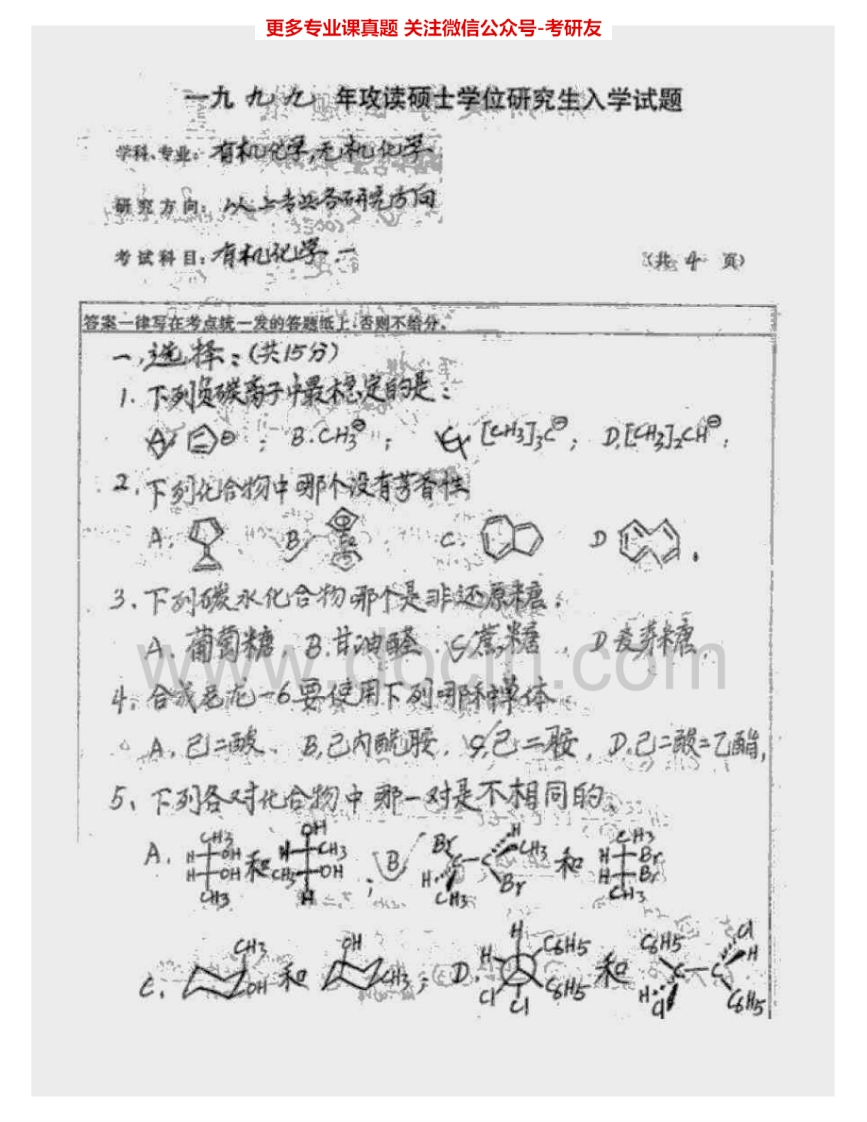 更多专业课真题 关注微信公众号-考研友
一九九九年攻读硕士学位研究生入学试题
学科、专业：有机化学,无机化学
研究方向：以上专业各研究方向
考试科目：有机化学.一 （共 4 页）
答案一律写在考点统一发的答题纸上,否则不给分。
一,选择：(共15分)
1.下列负碳离子中最稳定的是：
A, ⊖； B.CH3⊖； C, [CH3]3C⊖； D,[CH3]2CH⊖；
2,下列化合物中哪个没有芳香性
A, B, C. D
3,下列碳水化合物哪个是非还原糖：
A、葡萄糖 B.甘油醛 C,蔗糖 , D麦芽糖,
www.docin.com
4,合成尼龙-6要使用下列哪种单体
A,己二酸、 B,己内酰胺, C,己二胺, D.己二酸二乙酯,
5、下列各对化合物中哪一对是不相同的、
A. CH3 H OH H OH CH3 和 OH H CH3 CH3 OH H ； B, Br H CH3 C C H CH3 Br 和 CH3 H Br H Br CH3
C. CH3 OH 和 OH CH3 ； D. H H C6H5 Cl C6H5 Cl 和 C6H5 H Cl C C Cl H C6H5